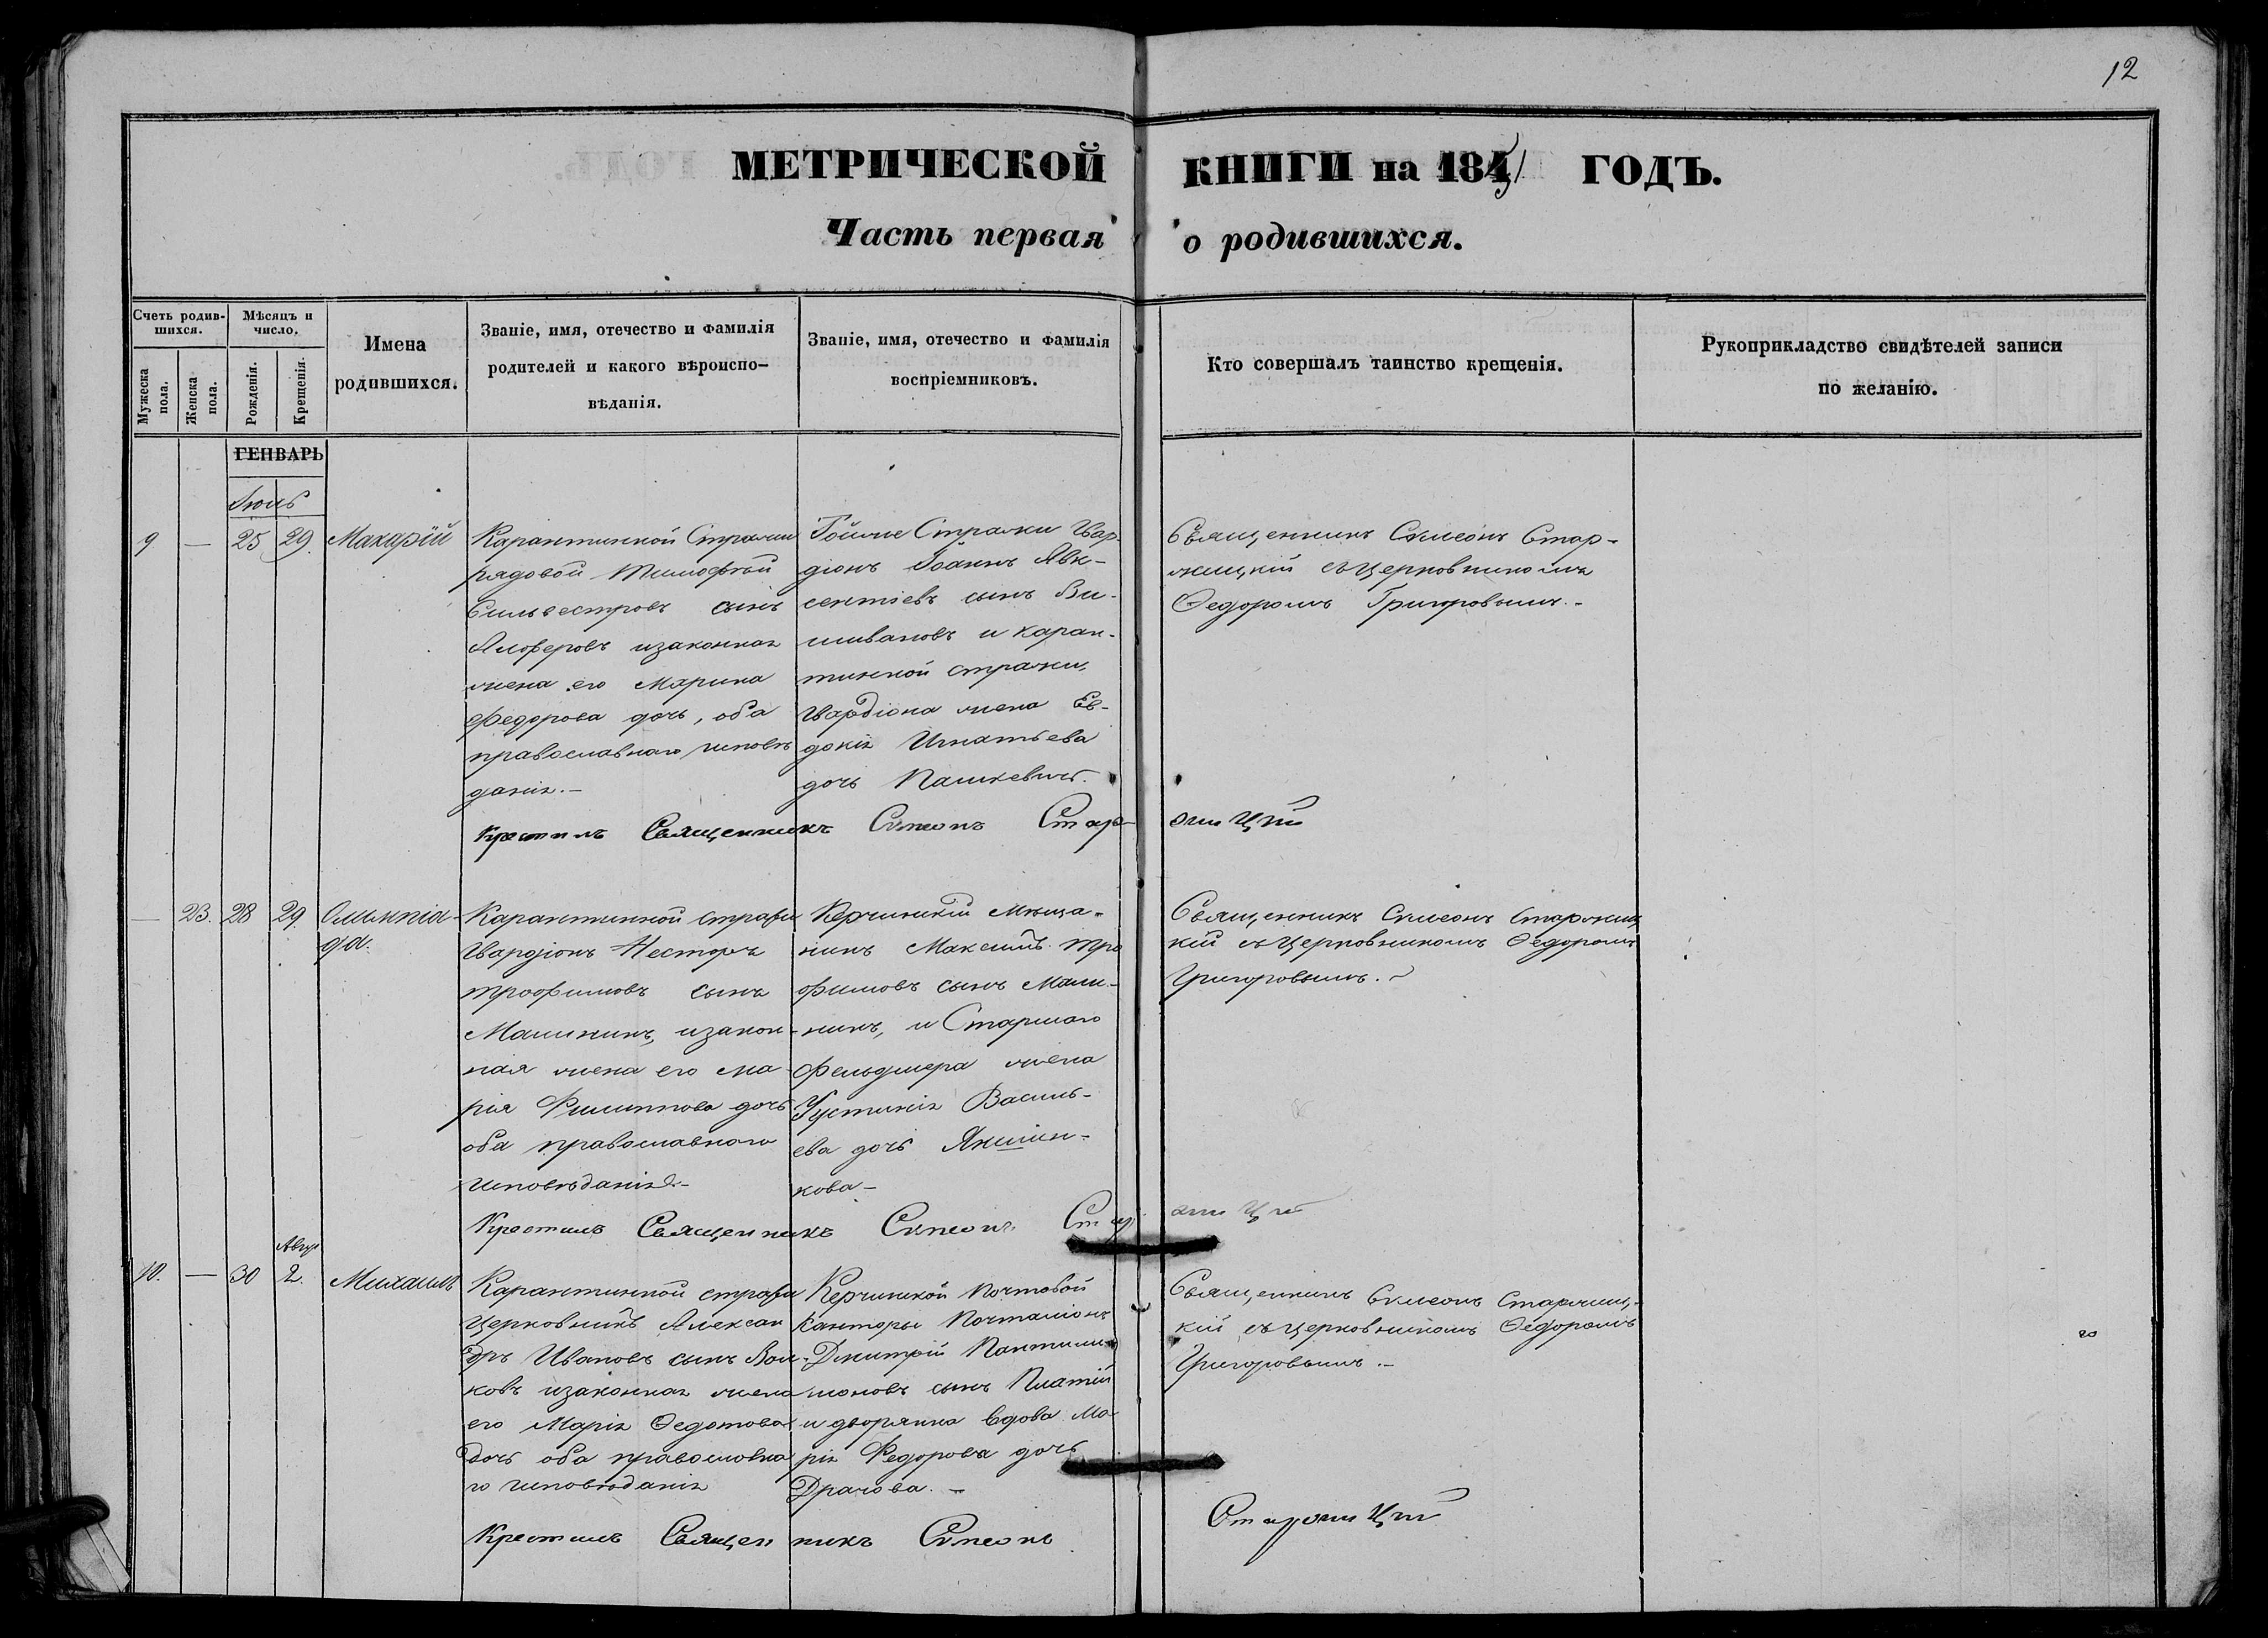 12
МЕТРИЧЕСКОЙ КНИГИ на 1851 ГОДЪ.
Часть первая о родившихся.
Счетъ родив-
шихся.
Мужеска
пола.
Женска
пола.
Мѣсяцъ и
число.
Рожденія.
Крещенія.
Имена
родившихся.
Званіе, имя, отечество и фамилія
родителей и какого вѣроиспо-
вѣданія.
Званіе, имя, отечество и фамилія
воспріемниковъ.
Кто совершалъ таинство крещенія.
Рукоприкладство свидѣтелей записи
по желанію.
ГЕНВАРЬ
Іюль
9 — 25 29. Макарій
Карантинной Стражи
рядовой Тимофѣй
Сильвестровъ сынъ
Алоферовъ изаконная
жена его Марина
Федорова дочь, оба
православнаго исповѣ
данія.—
Тойже Стражи Гвар-
діонъ Іоаннъ Авк-
сентіевъ сынъ
и каран-
тинной стражи,
Гвардіона жена Ев-
докія Игнатьева
дочь Пашкевичъ.
Священникъ Симеонъ Стар-
жицкій съ Церковникомъ
Ѳедоромъ Григоровымъ.-
Крестилъ Священникъ Симеонъ Старжицкій
— 23. 28 29. Олимпіа-
да.
Карантинной стражи
Гвардіонъ Несторъ
Трофимовъ сынъ
Малининъ, изакон-
ная жена его Ма-
рія Филиппова дочь
оба православнаго
исповѣданія.-
Керчинскій Мѣща-
нинъ Максимъ Тро
фимовъ сынъ Мали-
нинъ, и Старшаго
фельдшера жена
Густинія Василь-
ева дочь Якимен-
кова-
Священникъ Симеонъ Старжиц
кій съ Церковникомъ Ѳедоромъ
Григоровымъ.~
Крестилъ Священникъ Симеонъ Старжицкій
Авгус
10. — 30 2. Михаилъ
Карантинной стражи
Церковникъ Алексан
дръ Ивановъ сынъ Вол-
ковъ изаконная жена
его Марія Ѳедотова
дочь оба православна
го исповѣданія
Керчинской Почтовой
Канторы Почталіонъ
Дмитрій Пантили-
моновъ сынъ Платій
и дворянка вдова Ма
рія Федорова дочь
Драгова.—
Священникъ Симеонъ Старжиц-
кій съ Церковникомъ Ѳедоромъ
Григоровымъ.—
Крестилъ Священникъ Симеонъ Старжицкій